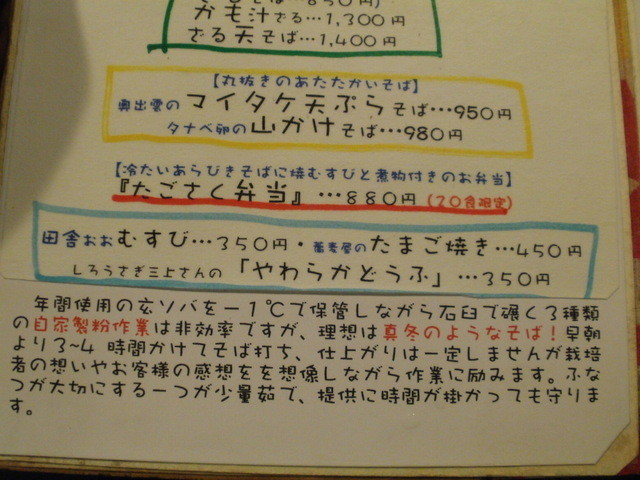 かも汁ざる…1,300円
ざる天そば…1,400円
【丸抜きのあたたかいそば】
奥出雲のマイタケ天ぷらそば…950円
タナベ卵の山かけそば…980円
【冷たいあらびきそばに焼むすびと煮物付きのお弁当】
『たごさく弁当』…880円(20食限定)
田舎おおむすび…350円・蕎麦屋のたまご焼き…450円
しろうさぎ三上さんの「やわらかどうふ」…350円
年間使用の玄ソバを－1℃で保管しながら石臼で碾く3種類
の自家製粉作業は非効率ですが、理想は真冬のようなそば！早朝
より3~4 時間かけてそば打ち、仕上がりは一定しませんが栽培
者の想いやお客様の感想をを想像しながら作業に励みます。ふな
つが大切にする一つが少量茹で、提供に時間が掛かっても守りま
す。